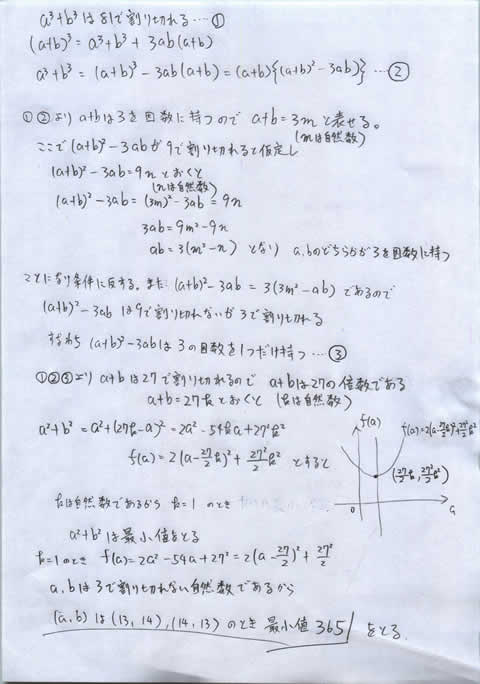 a³+b³は81で割り切れる…①
(a+b)³ = a³+b³+3ab(a+b)
a³+b³ = (a+b)³-3ab(a+b) = (a+b){(a+b)²-3ab} …②
①②より a+bは3を因数に持つので a+b=3mと表せる。
(mは自然数)
ここで(a+b)²-3abが9で割り切れると仮定し
(a+b)²-3ab=9nとおくと
(nは自然数)
(a+b)²-3ab=(3m)²-3ab=9n
3ab=9m²-9n
ab=3(m²-n) となり a,bのどちらかが3を因数に持つ
ことになり条件に反する。また (a+b)²-3ab = 3(3m²-ab) であるので
(a+b)²-3ab は9で割り切れないが3で割り切れる
すなわち (a+b)²-3abは3の因数を1つだけ持つ…③
①②③より a+bは27で割り切れるので a+bは27の倍数である
a+b=27kとおくと (kは自然数)
a²+b²=a²+(27k-a)²=2a²-54ka+27²k²
f(a)=2(a-27/2k)²+27²/2k² とすると
f(a)
f(a)=2(a-27/2k)²+27²/2k²
(27/2k, 27²/2k²)
0
a
kは自然数であるから k=1 のとき
a²+b²は最小値をとる
k=1のとき f(a)=2a²-54a+27²=2(a-27/2)²+27²/2
a,bは3で割り切れない自然数であるから
(a,b)は(13,14),(14,13)のとき 最小値365をとる